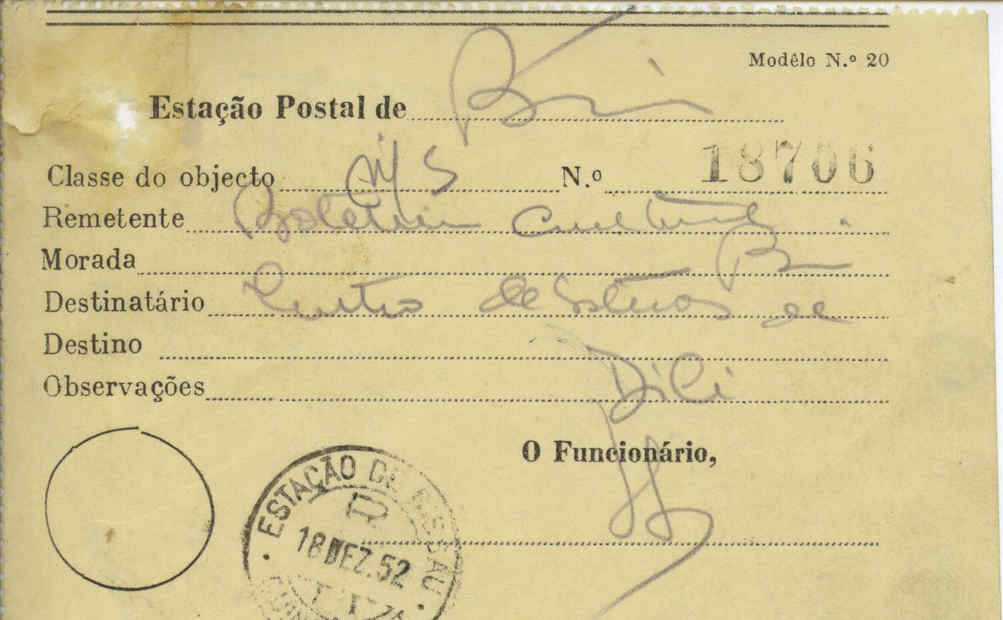 Modêlo N.º 20
Estação Postal de
Classe do objecto N.º 18706
Remetente Boletim Cultural
Morada
Destinatário Centro de Estudos de
Destino
Dili
Observações
O Funcionário,
ESTAÇÃO DE BISSAU
R
18 DEZ. 52